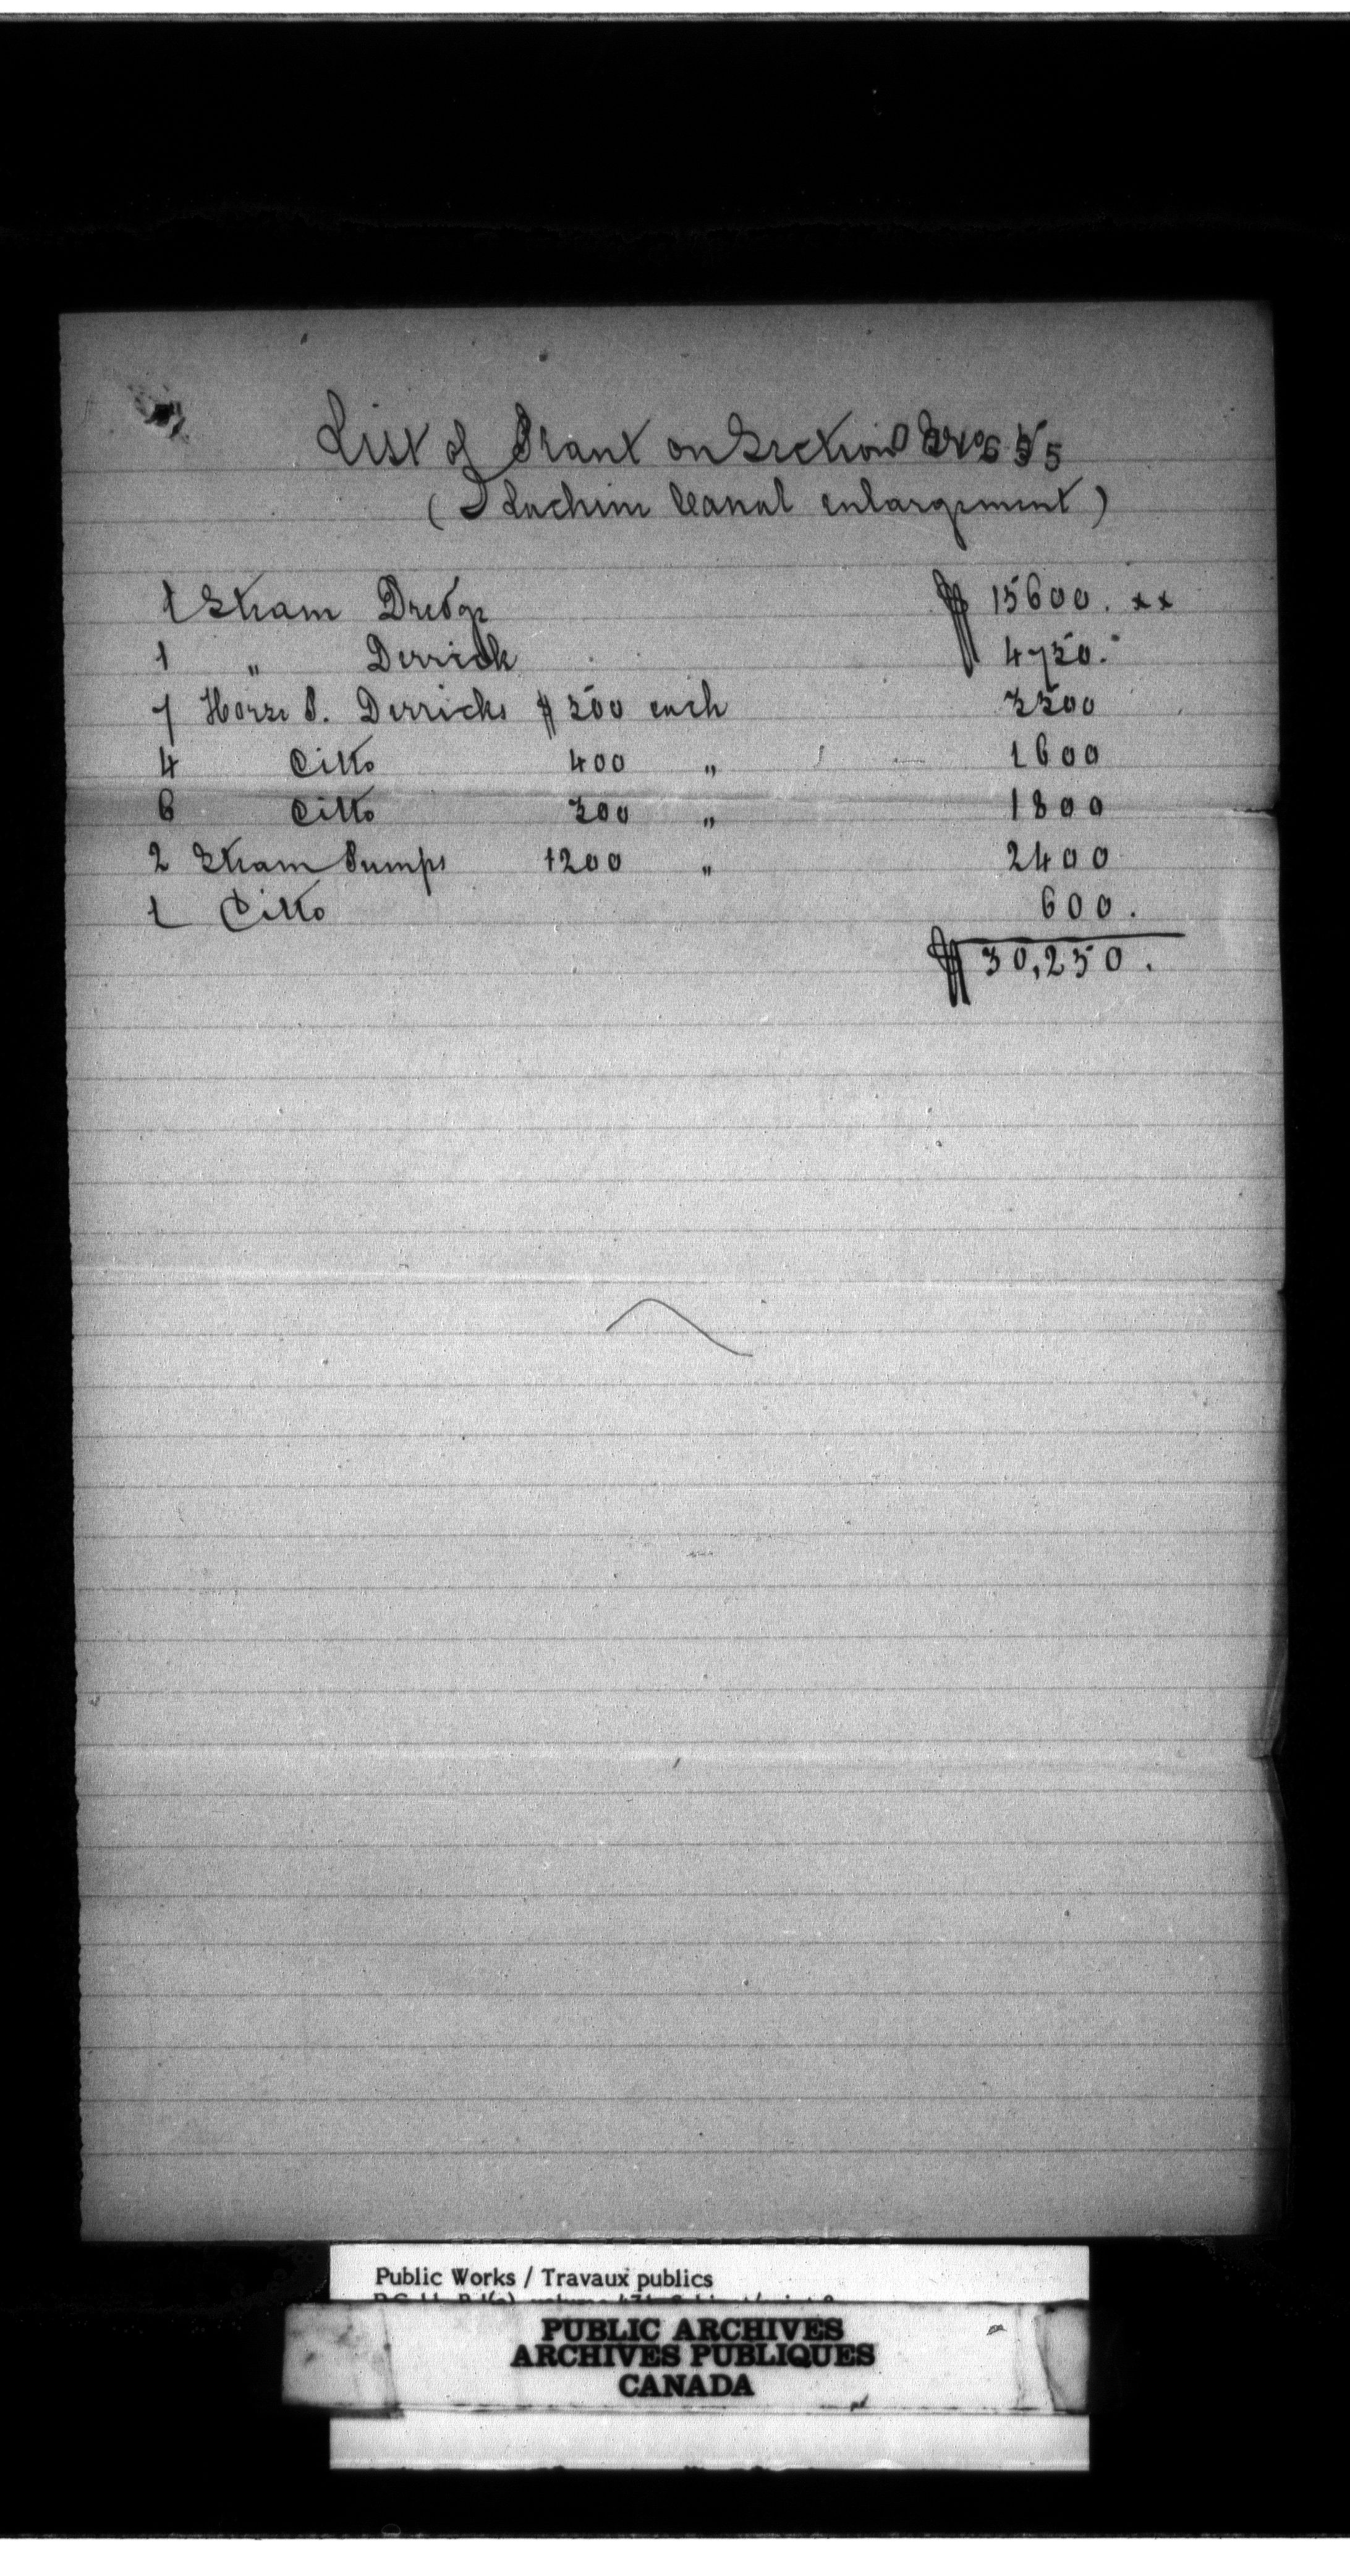 List of Plant on Section No 5
(Lachine Canal enlargement)
1 Steam Dredge $ 15600. xx
1 " Derrick 4750.
7 Horse P. Derricks $ 500 each 3500
4 Ditto 400 " 1600
6 Ditto 300 " 1800
2 Steam Pumps 1200 " 2400
1 Ditto 600.
$ 30,250.
Public Works / Travaux publics
PUBLIC ARCHIVES
ARCHIVES PUBLIQUES
CANADA